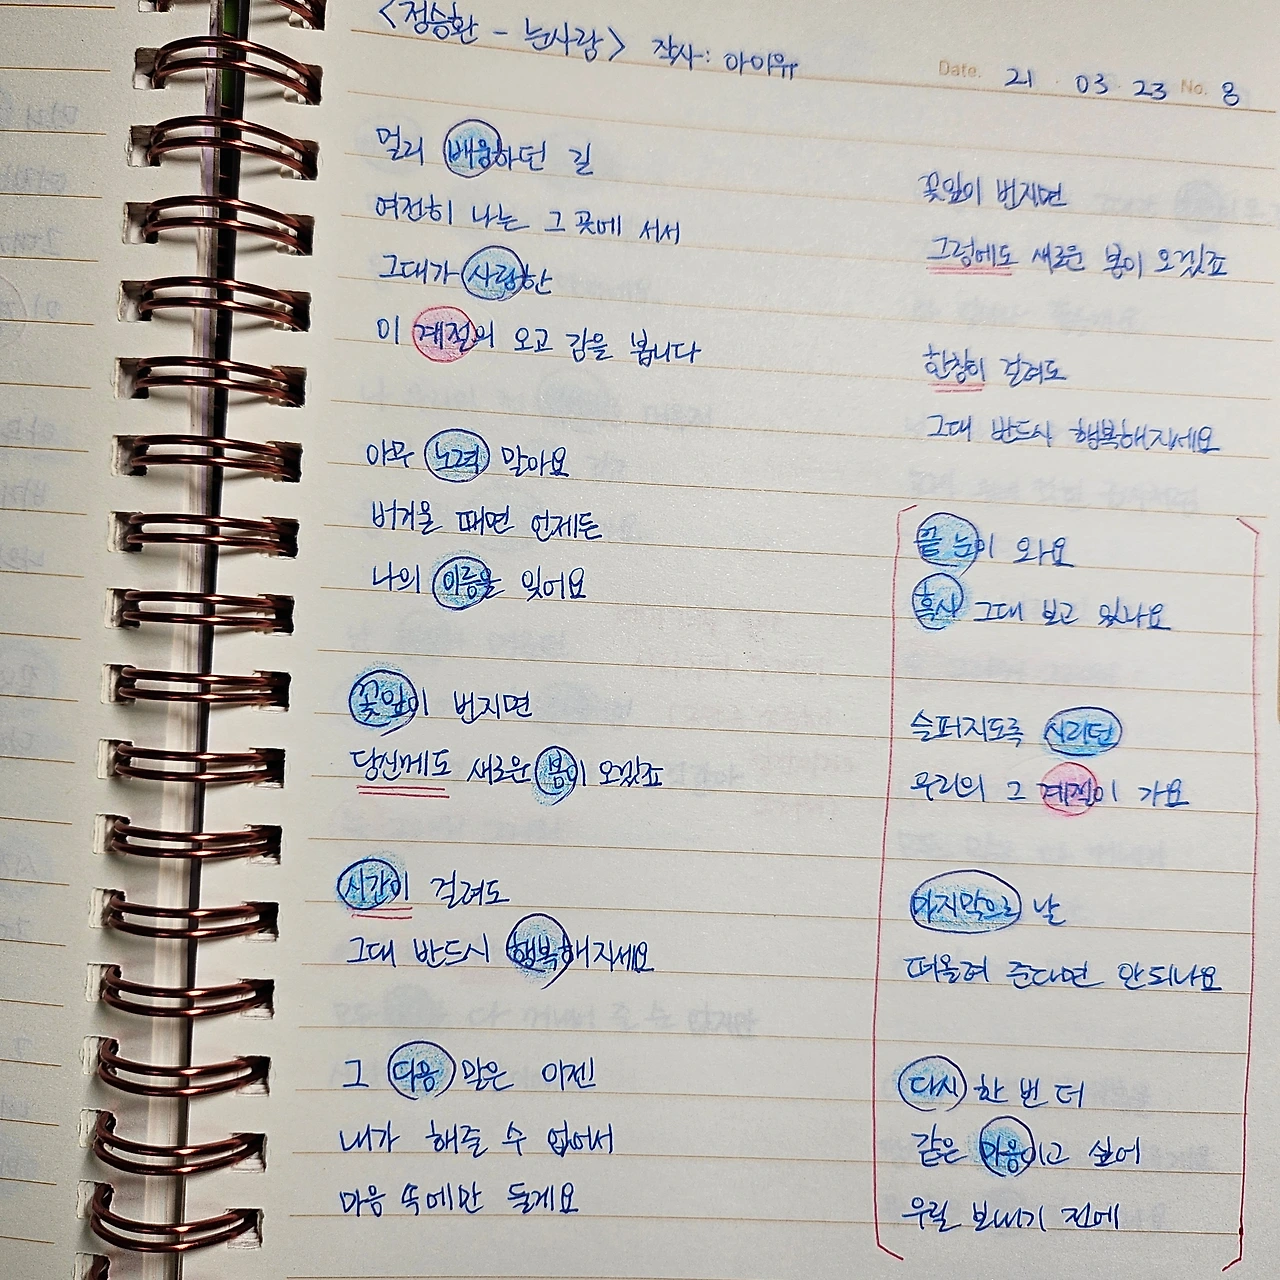 <정승환 - 눈사람> 작사: 아이유
Date. 21 . 03 . 23 No. 8
멀리 배웅하던 길
여전히 나는 그 곳에 서서
그대가 사랑한
이 계절의 오고 감을 봅니다
아무 노력 말아요
버거울 때면 언제든
나의 이름을 잊어요
꽃잎이 번지면
당신께도 새로운 봄이 오겠죠
시간이 걸려도
그대 반드시 행복해지세요
그 다음 말은 이젠
내가 해줄 수 없어서
마음 속에만 둘게요
꽃잎이 번지면
그럼에도 새로운 봄이 오겠죠
한참이 걸려도
그대 반드시 행복해지세요
끝 눈이 와요
혹시 그대 보고 있나요
슬퍼지도록 시리던
우리의 그 계절이 가요
마지막으로 날
떠올려 준다면 안 되나요
다시 한 번 더
같은 마음이고 싶어
우릴 보내기 전에